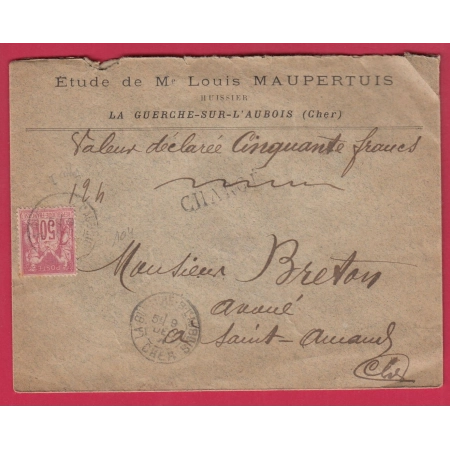 Etude de Me Louis MAUPERTUIS
HUISSIER
LA GUERCHE-SUR-L'AUBOIS (Cher)
Valeur déclarée Cinquante francs
CHARGÉ
50
Monsieur Breton
avoué
a Saint-Amand
Cher
CHER